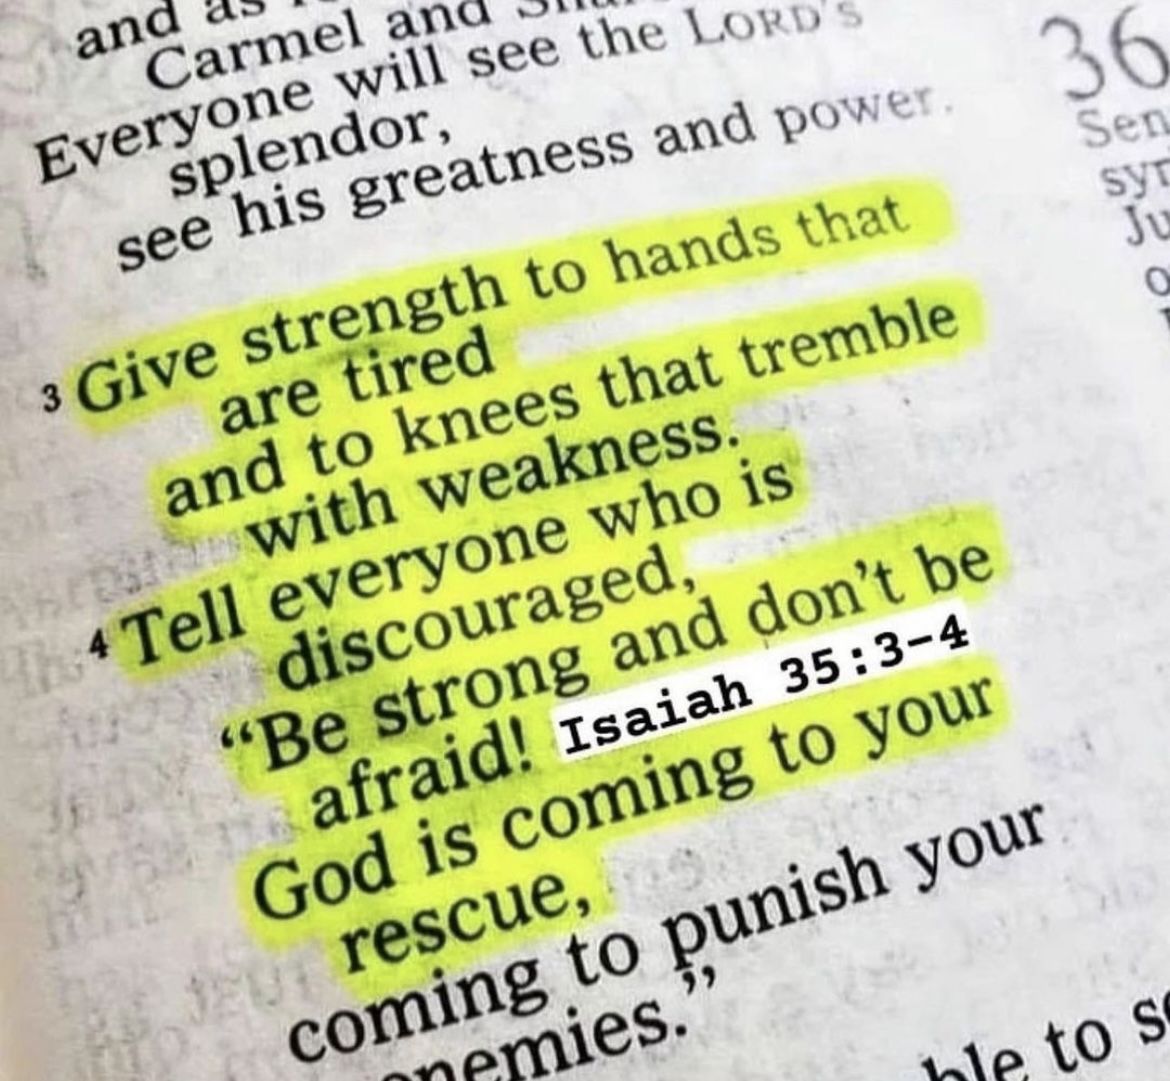 and as
Carmel and
Everyone will see the LORD'S
splendor,
see his greatness and power.
3 Give strength to hands that
are tired
and to knees that tremble
with weakness.
4 Tell everyone who is
discouraged,
“Be strong and don’t be
afraid!
Isaiah 35:3-4
God is coming to your
rescue,
coming to punish your
enemies.”
36
Sen
syr
Ju
to